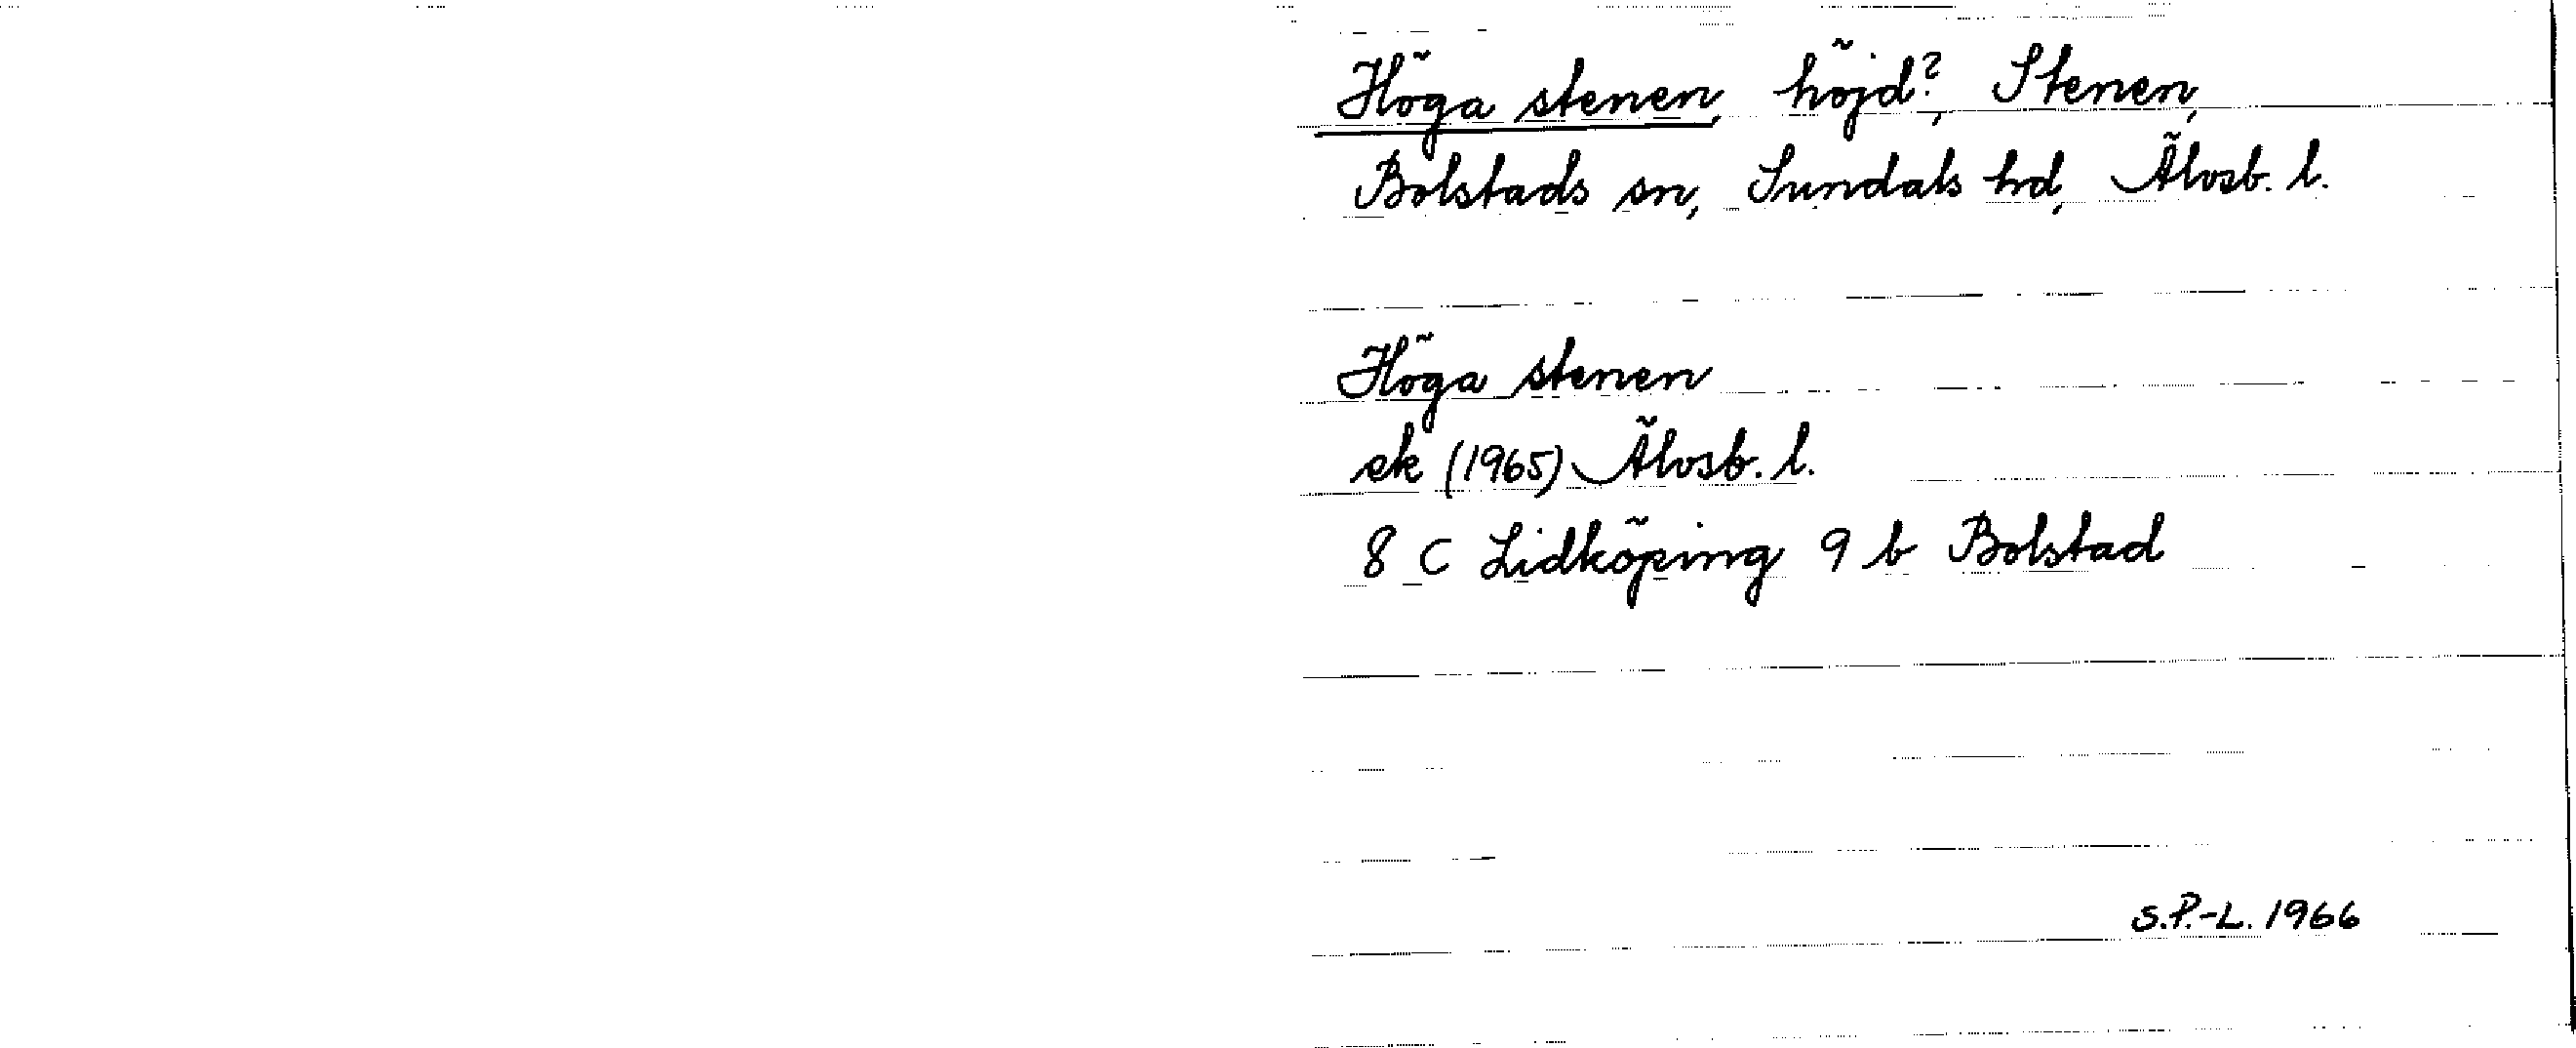 Höga stenen, höjd?, Stenen,
Bolstads sn, Sundals hd, Älvsb. l.
Höga stenen
ek (1965) Älvsb. l.
8 C Lidköping 9 b Bolstad
S.P.-L. 1966